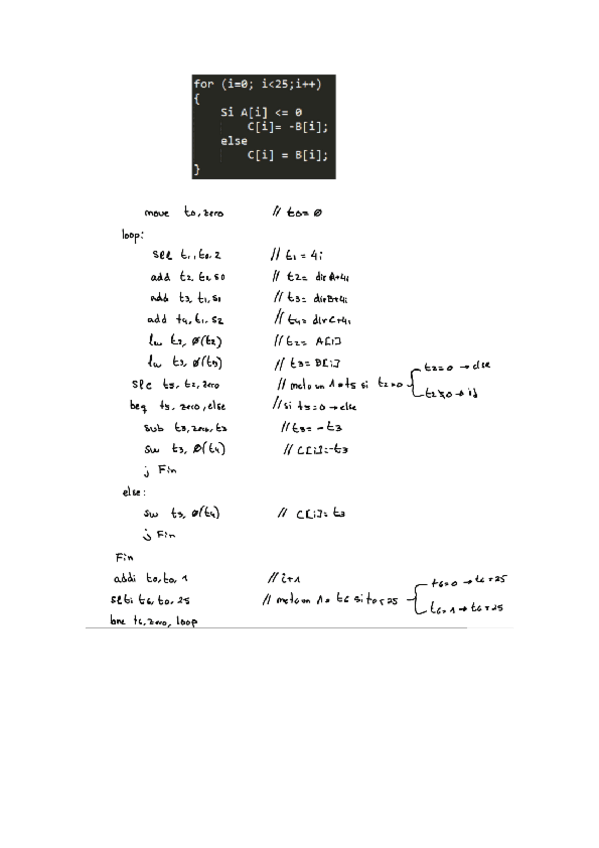 for (i=0; i<25;i++)
{
Si A[i] <= 0
C[i]= -B[i];
else
C[i] = B[i];
}
move t0, zero // t0= 0
loop:
sll t1, t0, 2 // t1 = 4i
add t2, t1, s0 // t2= dirA+4i
add t3, t1, s1 // t3= dirB+4i
add t4, t1, s2 // t4= dirC+4i
lw t2, 0(t2) // t2= A[i]
lw t3, 0(t3) // t3= B[i]
t2=0 → else
slt t5, t2, zero // meto un 1 t5 si t2
beq t5, zero, else // si t5=0 → else
sub t3, zero, t3 // t3= -t3
sw t3, 0(t4) // C[i]=-t3
j Fin
else:
sw t3, 0(t4) // C[i]= t3
j Fin
Fin
addi t0, t0, 1 // i+1
t6=0 →
slti t6, t0, 25 // meto un 1 t6 si t0<25
t6=1 →
bne t6, zero, loop